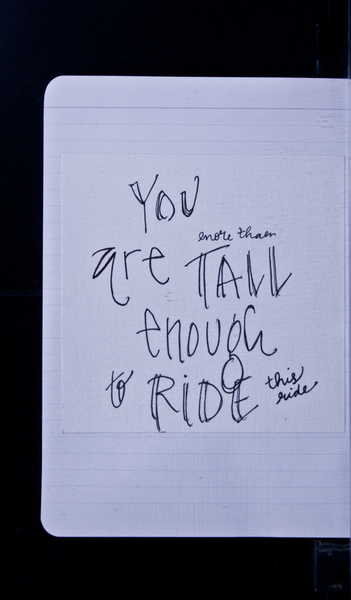 You
more than
are TALL
enough
to RIDE this
ride